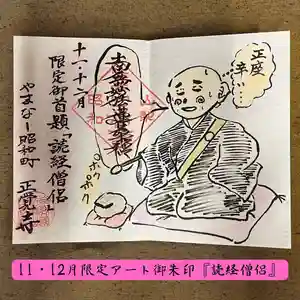 十一・十二月
限定御首題「読経僧侶」
やまなし昭和町 正覚寺
南無妙法蓮華経
正座
辛い…
ポク
ポク
11・12月限定アート御朱印『読経僧侶』